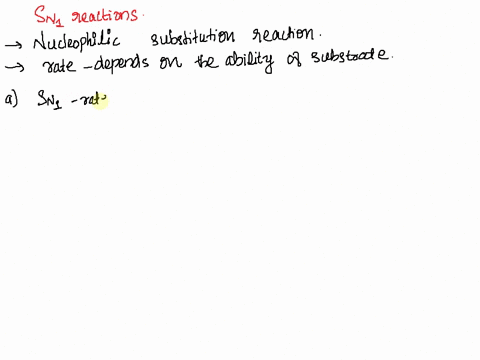 SN1 reactions.
→ Nucleophilic substitution reaction.
→ rate - depends on the ability of substrate.
a) SN1 - rat